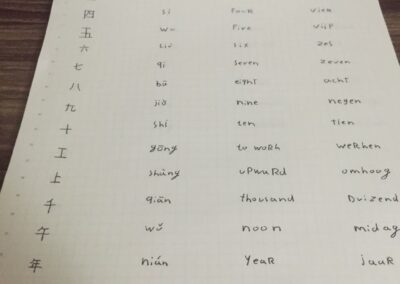 四 si four vier
五 wu Five vijf
六 liù six zes
七 qi seven zeven
八 bā eight acht
九 jiǔ nine negen
十 shí ten tien
工 gōng to work werken
上 shàng upward omhoog
千 qiān thousand Duizend
午 wǔ noon midag
年 nián year jaar